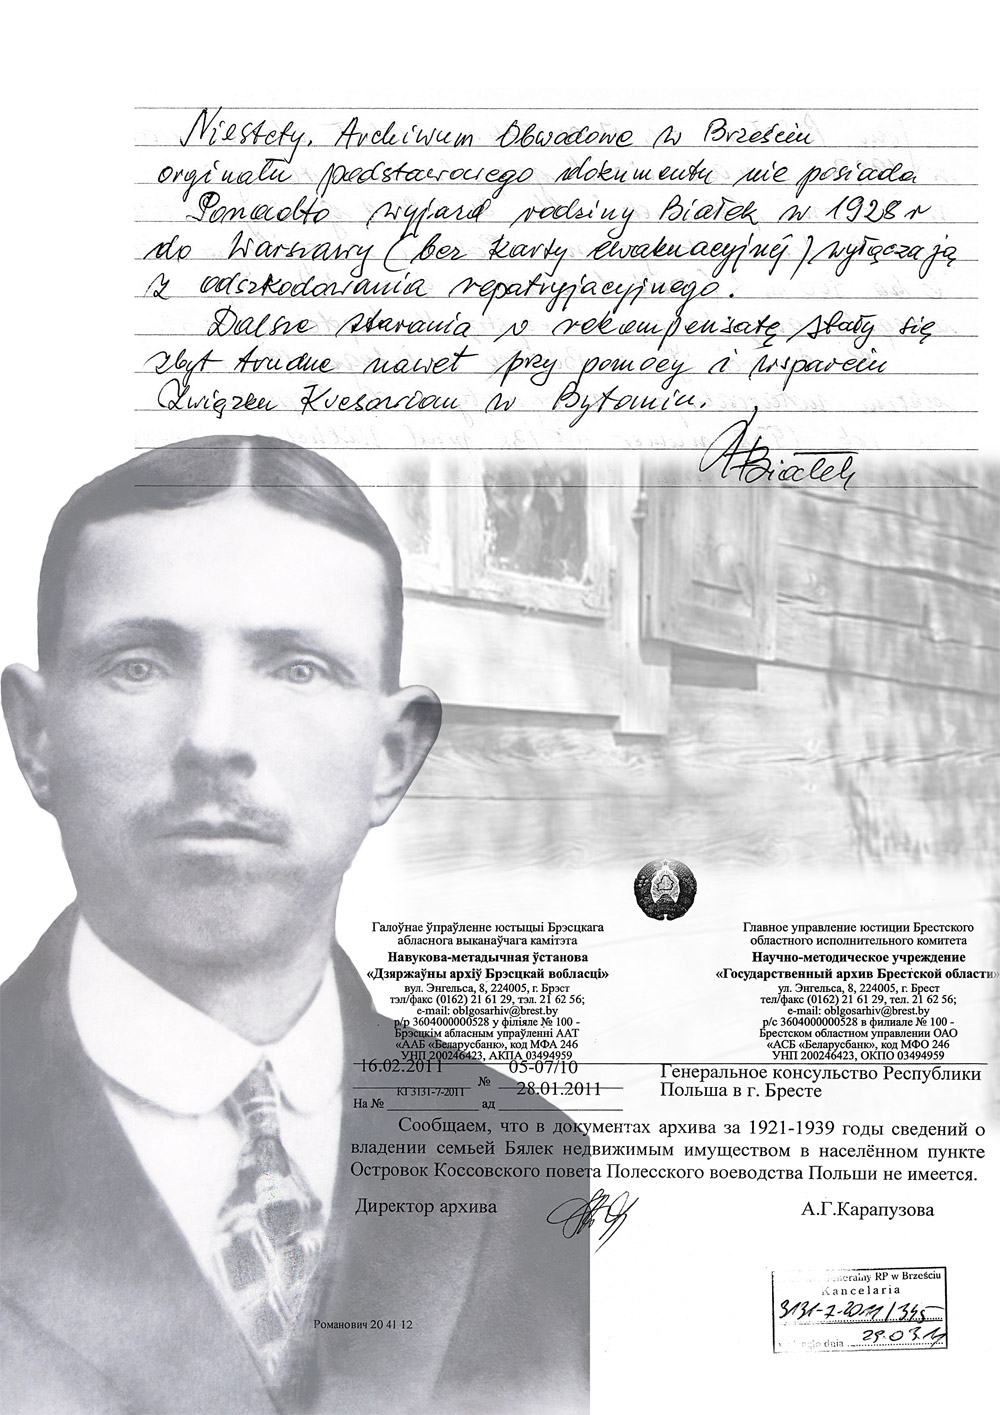 Niestety. Archiwum Obwodowe w Brześciu
orginału podstawowego dokumentu nie posiada
Ponadto wyjazd rodziny Białek w 1928 r
do Warszawy (bez karty ewakuacyjnéj) wyłączają
z odszkodowania repatryjacyjnego.
Dalsze starania o rekompensatę stały się
zbyt trudne nawet przy pomocy i wsparciu
Związku Kresowian w Bytomiu.
Białek
Галоўнае ўпраўленне юстыцыі Брэсцкага
абласнога выканаўчага камітэта
Навукова-метадычная ўстанова
«Дзяржаўны архіў Брэсцкай вобласці»
вул. Энгельса, 8, 224005, г. Брэст
тэл/факс (0162) 21 61 29, тэл. 21 62 56;
e-mail: oblgosarhiv@brest.by
р/р 3604000000528 у філіяле № 100 -
Брэсцкім абласным упраўленні ААТ
«ААБ «Беларусбанк», код МФА 246
УНП 200246423, АКПА 03494959
Главное управление юстиции Брестского
областного исполнительного комитета
Научно-методическое учреждение
«Государственный архив Брестской области»
ул. Энгельса, 8, 224005, г. Брест
тел/факс (0162) 21 61 29, тел. 21 62 56;
e-mail: oblgosarhiv@brest.by
р/с 3604000000528 в филиале № 100 -
Брестском областном управлении ОАО
«АСБ «Беларусбанк», код МФО 246
УНП 200246423, ОКПО 03494959
16.02.2011 № 05-07/10
КГ3131-7-2011 28.01.2011
На № ад
Генеральное консульство Республики
Польша в г. Бресте
Сообщаем, что в документах архива за 1921-1939 годы сведений о
владении семьей Бялек недвижимым имуществом в населённом пункте
Островок Коссовского повета Полесского воеводства Польши не имеется.
Директор архива А.Г.Карапузова
RP w Brześciu
Kancelaria
3131-7-2011/345
dnia 29.03.11
Романович 20 41 12